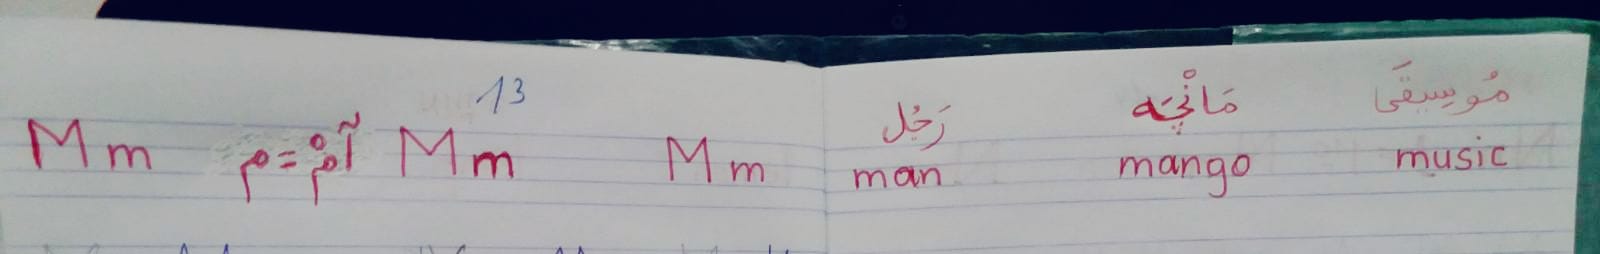 13
Mm آمْ = م Mm Mm
رَجُل مَانْجَه مُوسِيقَى
man mango music